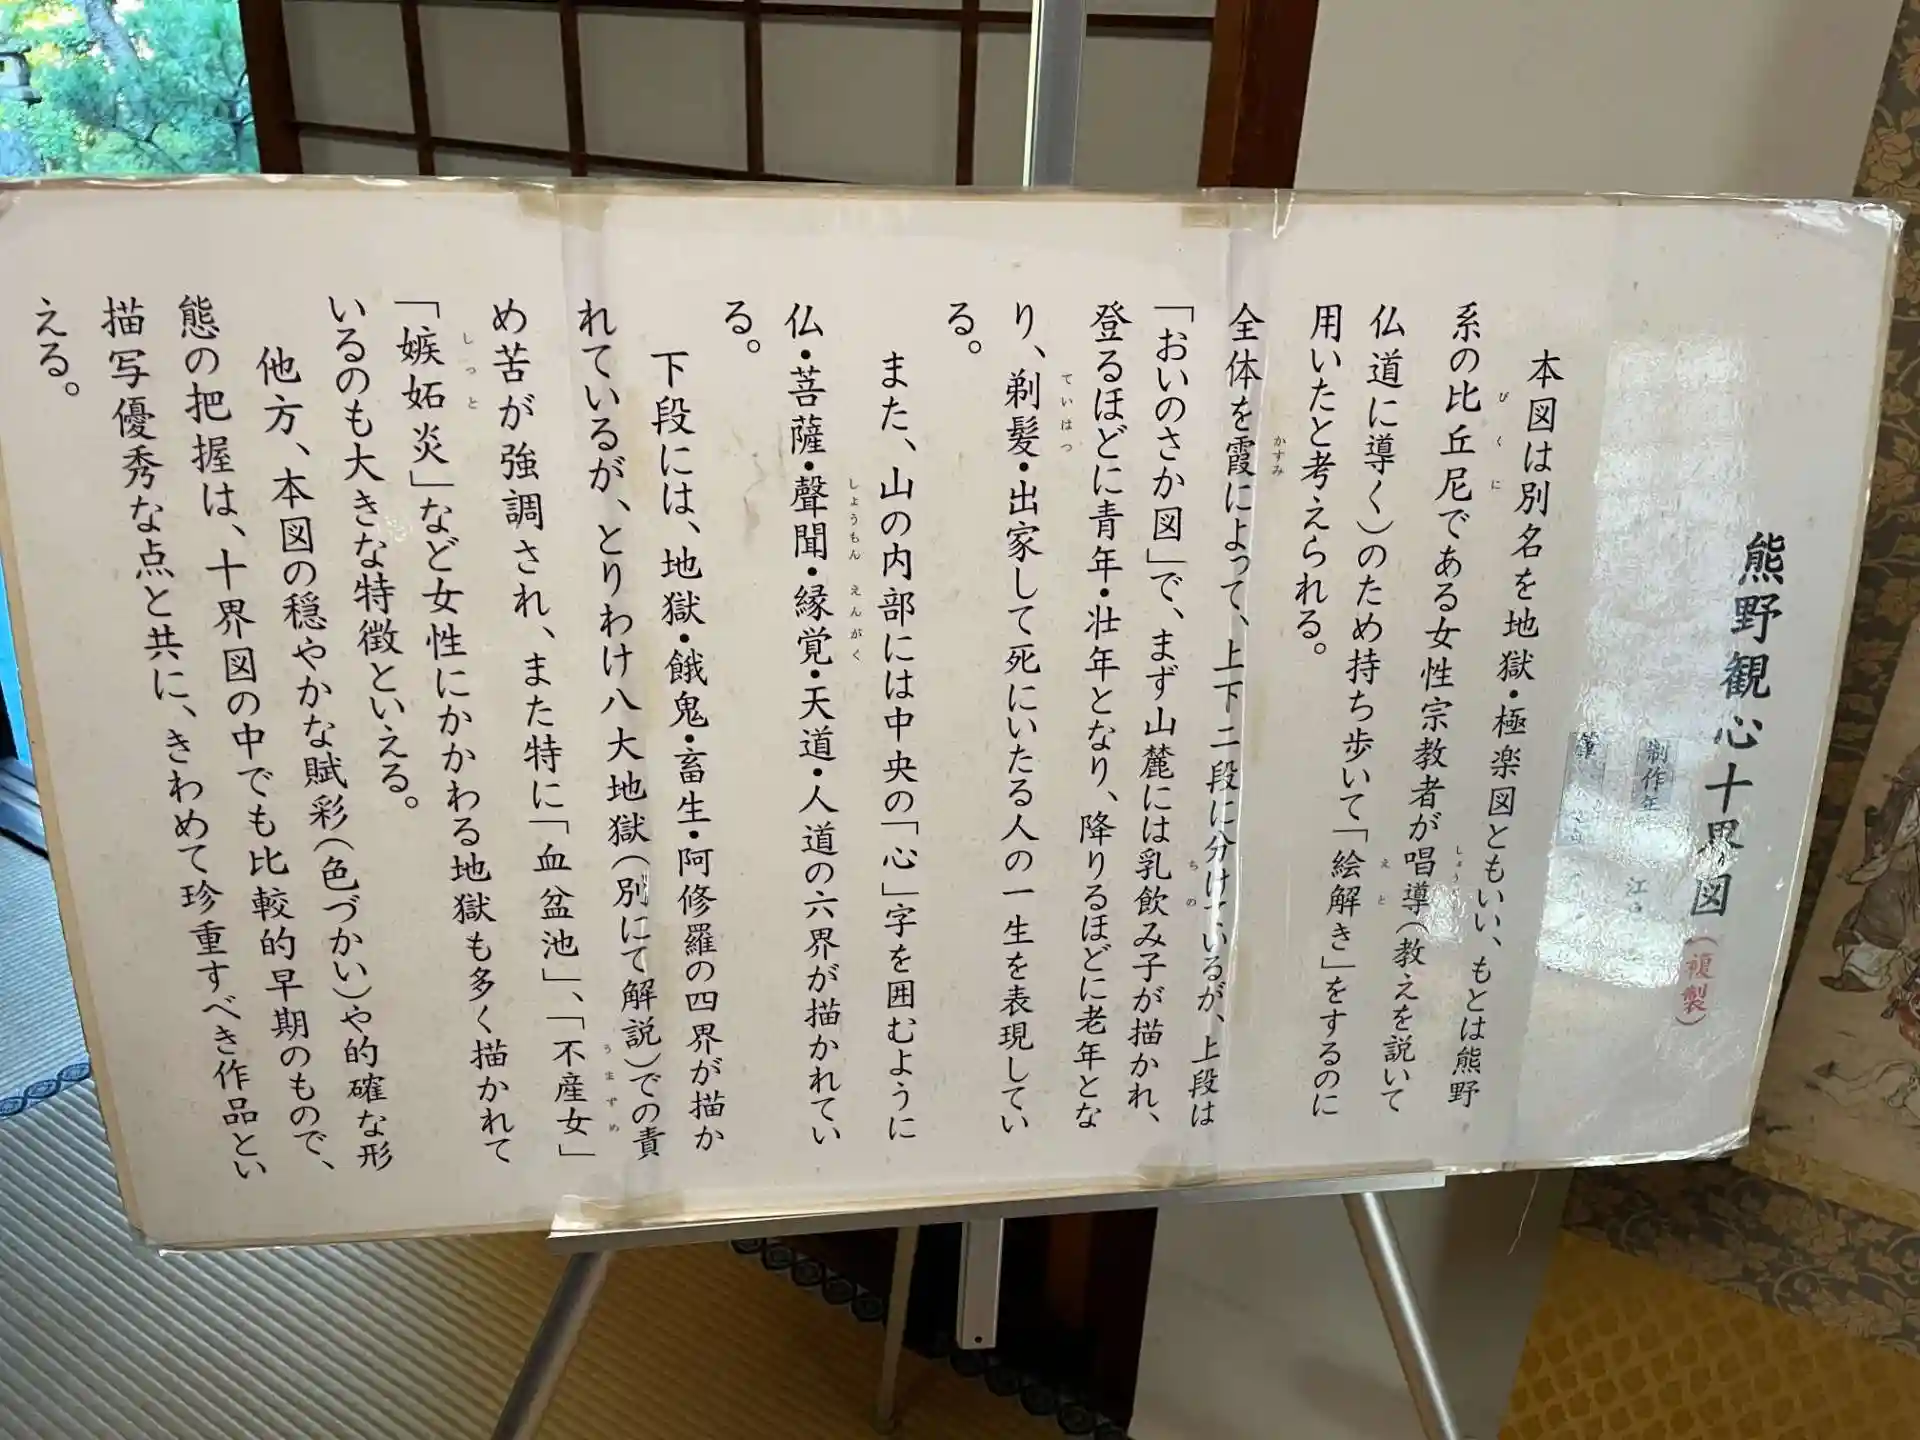 熊野観心十界図(複製)
制作年 江
筆
本図は別名を地獄・極楽図ともいい、もとは熊野
系の比丘尼である女性宗教者が唱導(教えを説いて
仏道に導く)のため持ち歩いて「絵解き」をするのに
用いたと考えられる。
全体を霞によって、上下二段に分けているが、上段は
「おいのさか図」で、まず山麓には乳飲み子が描かれ、
登るほどに青年・壮年となり、降りるほどに老年とな
り、剃髪・出家して死にいたる人の一生を表現してい
る。
また、山の内部には中央の「心」字を囲むように
仏・菩薩・聲聞・縁覚・天道・人道の六界が描かれてい
る。
下段には、地獄・餓鬼・畜生・阿修羅の四界が描か
れているが、とりわけ八大地獄(別にて解説)での責
め苦が強調され、また特に「血盆池」、「不産女」
「嫉妬炎」など女性にかかわる地獄も多く描かれて
いるのも大きな特徴といえる。
他方、本図の穏やかな賦彩(色づかい)や的確な形
態の把握は、十界図の中でも比較的早期のもので、
描写優秀な点と共に、きわめて珍重すべき作品とい
える。